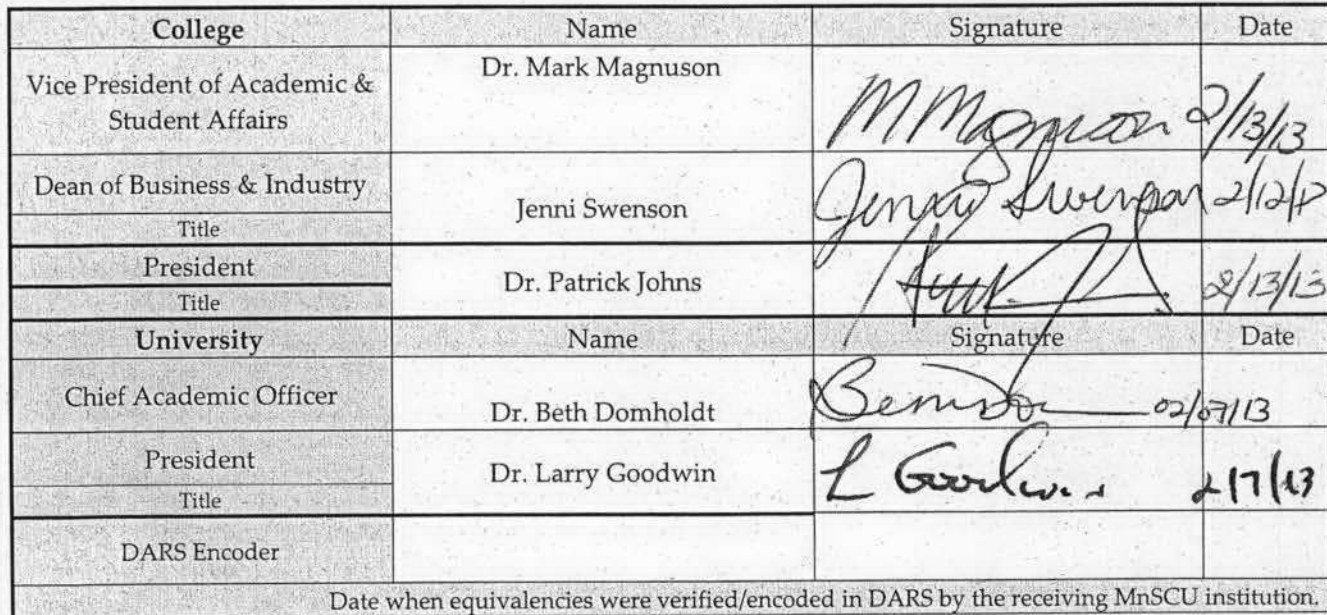 College Name Signature Date
Vice President of Academic &
Student Affairs
Dr. Mark Magnuson
M Magnuson 2/13/13
Dean of Business & Industry
Title
Jenni Swenson
Jenni Swenson 2/12/13
President
Title
Dr. Patrick Johns
2/13/13
University Name Signature Date
Chief Academic Officer
Dr. Beth Domholdt
02/07/13
President
Title
Dr. Larry Goodwin
L Goodwin 2/7/13
DARS Encoder
Date when equivalencies were verified/encoded in DARS by the receiving MnSCU institution.